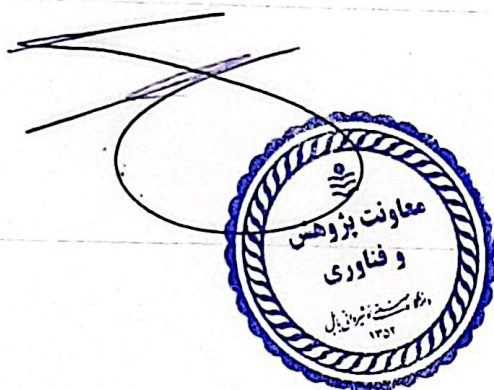 معاونت پژوهش
و فناوری
دانشگاه صنعتی نوشیروانی بابل
۱۳۵۲